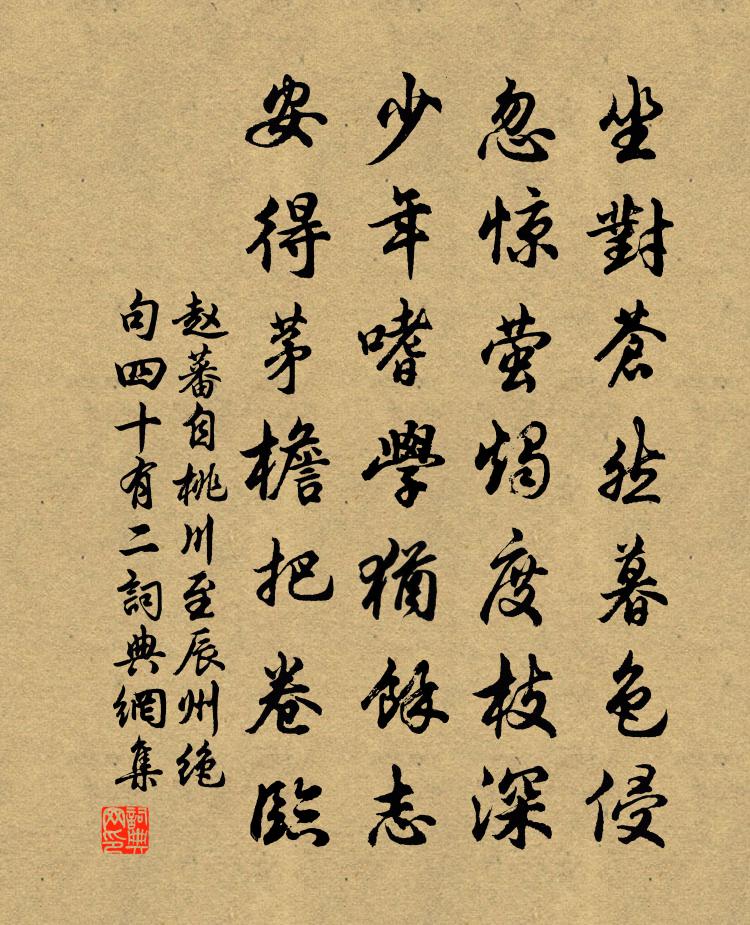 坐對蒼然暮色侵
忽惊萤燭度枝深
少年嗜學猶餘志
安得茅檐把卷臨
赵蕃自桃川至辰州绝
句四十有二詞典網集
詞典网印